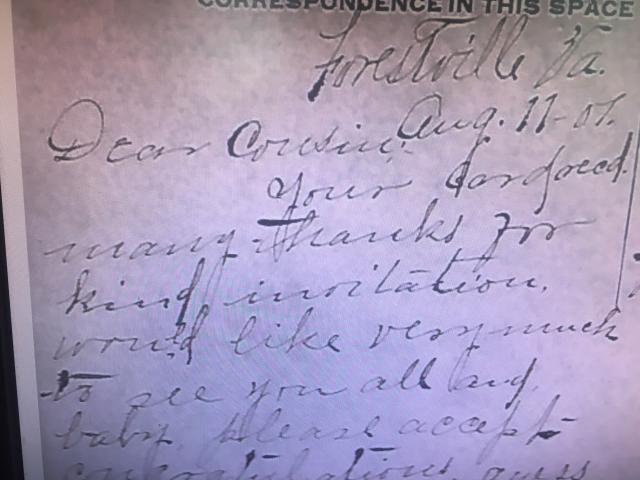 CORRESPONDENCE IN THIS SPACE
Forestville Va.
Aug. 11-07.
Dear Cousin:
Your card recd.
many thanks for
kind invitation.
would like very much
to see you all and
baby. Please accept
congratulations, guess